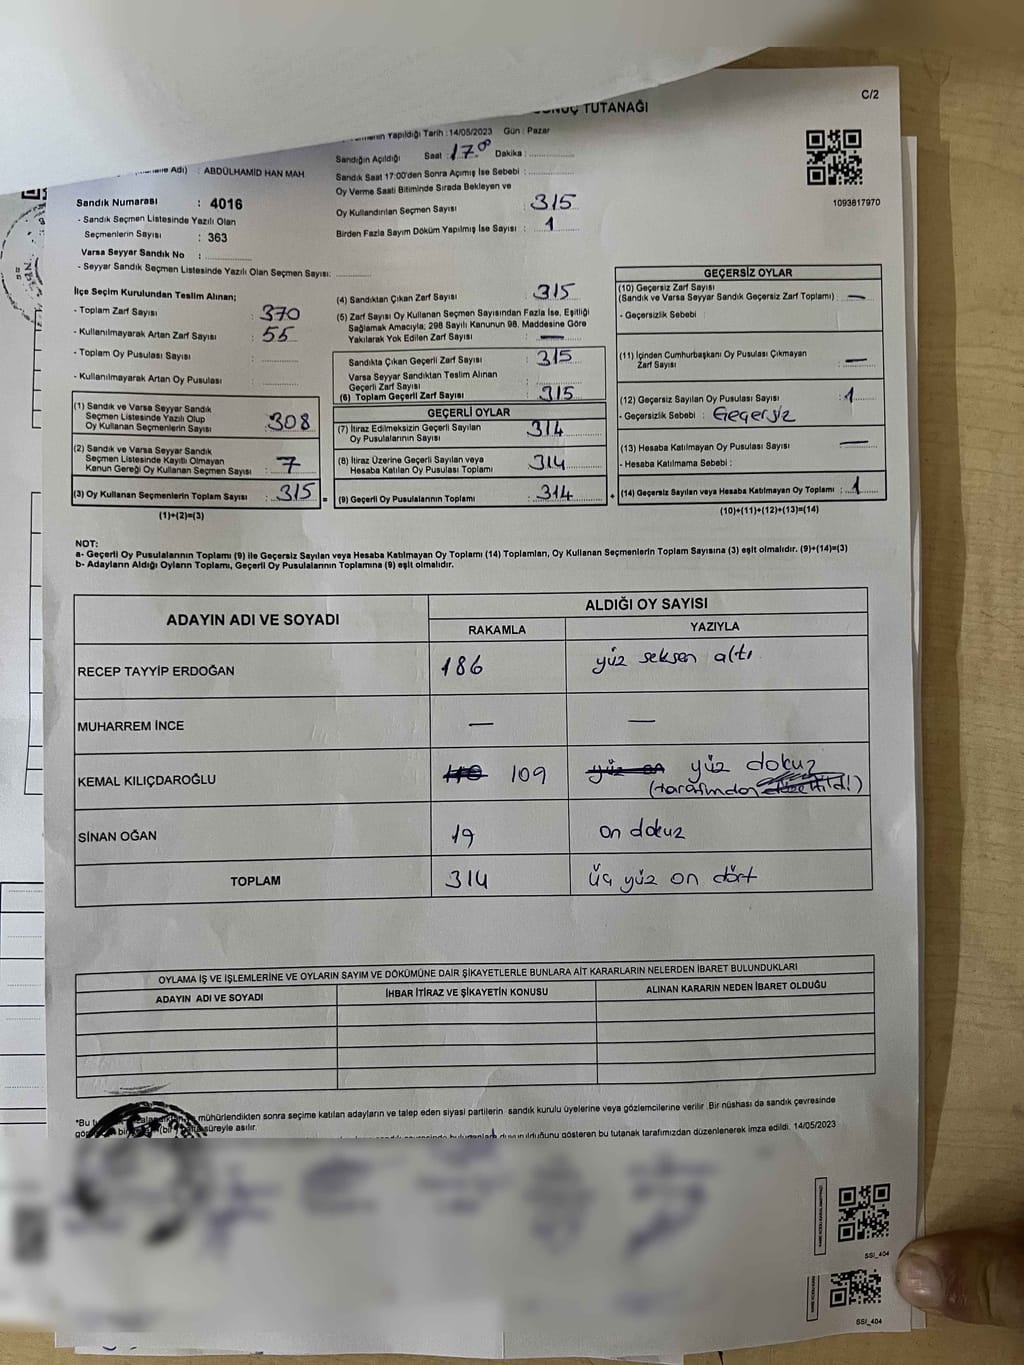 C/2
SONUÇ TUTANAĞI
Yapıldığı Tarih : 14/05/2023 Gün : Pazar
Sandığın Açıldığı Saat : 17.00 Dakika :
Adı) : ABDÜLHAMİD HAN MAH
Sandık Saat 17:00'den Sonra Açımış İse Sebebi :
Oy Verme Saati Bitiminde Sırada Bekleyen ve
Oy Kullandırılan Seçmen Sayısı : 315
Birden Fazla Sayım Döküm Yapılmış İse Sayısı : 1
1093817970
Sandık Numarası : 4016
- Sandık Seçmen Listesinde Yazılı Olan
Seçmenlerin Sayısı : 363
Varsa Seyyar Sandık No :
- Seyyar Sandık Seçmen Listesinde Yazılı Olan Seçmen Sayısı:
İlçe Seçim Kurulundan Teslim Alınan;
- Toplam Zarf Sayısı : 370
- Kullanılmayarak Artan Zarf Sayısı : 55
- Toplam Oy Pusulası Sayısı :
- Kullanılmayarak Artan Oy Pusulası :
(1) Sandık ve Varsa Seyyar Sandık
Seçmen Listesinde Yazılı Olup
Oy Kullanan Seçmenlerin Sayısı : 308
(2) Sandık ve Varsa Seyyar Sandık
Seçmen Listesinde Kayıtlı Olmayan
Kanun Gereği Oy Kullanan Seçmen Sayısı : 7
(3) Oy Kullanan Seçmenlerin Toplam Sayısı : 315 =
(1)+(2)=(3)
(4) Sandıktan Çıkan Zarf Sayısı : 315
(5) Zarf Sayısı Oy Kullanan Seçmen Sayısından Fazla İse, Eşitliği
Sağlamak Amacıyla; 298 Sayılı Kanunun 98. Maddesine Göre
Yakılarak Yok Edilen Zarf Sayısı : —
Sandıkta Çıkan Geçerli Zarf Sayısı : 315
Varsa Seyyar Sandıktan Teslim Alınan
Geçerli Zarf Sayısı :
(6) Toplam Geçerli Zarf Sayısı : 315
GEÇERLİ OYLAR
(7) İtiraz Edilmeksizin Geçerli Sayılan
Oy Pusulalarının Sayısı : 314
(8) İtiraz Üzerine Geçerli Sayılan veya
Hesaba Katılan Oy Pusulası Toplamı : 314
(9) Geçerli Oy Pusulalarının Toplamı : 314 +
GEÇERSİZ OYLAR
(10) Geçersiz Zarf Sayısı
(Sandık ve Varsa Seyyar Sandık Geçersiz Zarf Toplamı) : —
- Geçersizlik Sebebi :
(11) İçinden Cumhurbaşkanı Oy Pusulası Çıkmayan
Zarf Sayısı : —
(12) Geçersiz Sayılan Oy Pusulası Sayısı : 1
- Geçersizlik Sebebi : Geçersiz
(13) Hesaba Katılmayan Oy Pusulası Sayısı : —
- Hesaba Katılmama Sebebi :
(14) Geçersiz Sayılan veya Hesaba Katılmayan Oy Toplamı : 1
(10)+(11)+(12)+(13)=(14)
NOT:
a- Geçerli Oy Pusulalarının Toplamı (9) ile Geçersiz Sayılan veya Hesaba Katılmayan Oy Toplamı (14) Toplamları, Oy Kullanan Seçmenlerin Toplam Sayısına (3) eşit olmalıdır. (9)+(14)=(3)
b- Adayların Aldığı Oyların Toplamı, Geçerli Oy Pusulalarının Toplamına (9) eşit olmalıdır.
ADAYIN ADI VE SOYADI
ALDIĞI OY SAYISI
RAKAMLA YAZIYLA
RECEP TAYYİP ERDOĞAN 186 yüz seksen altı
MUHARREM İNCE — —
KEMAL KILIÇDAROĞLU 110 109 yüz on yüz dokuz
(tarafımdan
SİNAN OĞAN 19 on dokuz
TOPLAM 314 üç yüz on dört
OYLAMA İŞ VE İŞLEMLERİNE VE OYLARIN SAYIM VE DÖKÜMÜNE DAİR ŞİKAYETLERLE BUNLARA AİT KARARLARIN NELERDEN İBARET BULUNDUKLARI
ADAYIN ADI VE SOYADI İHBAR İTİRAZ VE ŞİKAYETİN KONUSU ALINAN KARARIN NEDEN İBARET OLDUĞU
*Bu mühürlendikten sonra seçime katılan adayların ve talep eden siyasi partilerin sandık kurulu üyelerine veya gözlemcilerine verilir .Bir nüshası da sandık çevresinde
(bir) hafta süreyle asılır.
duyurulduğunu gösteren bu tutanak tarafımızdan düzenlenerek imza edildi. 14/05/2023
SSI_404
SSI_404